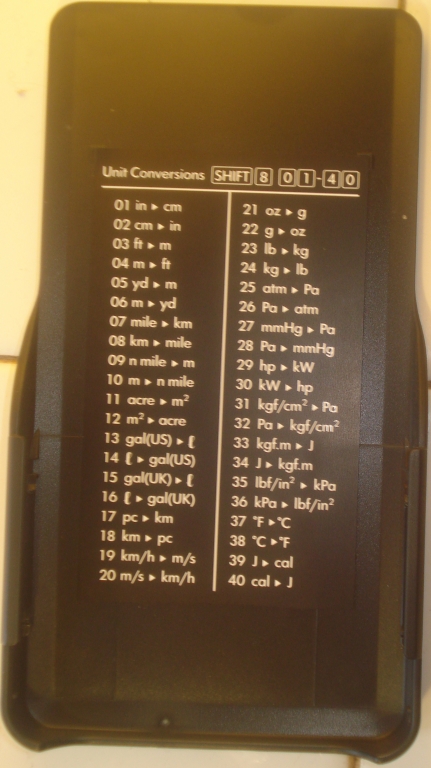 Unit Conversions SHIFT 8 01-40
01 in ▸ cm
02 cm ▸ in
03 ft ▸ m
04 m ▸ ft
05 yd ▸ m
06 m ▸ yd
07 mile ▸ km
08 km ▸ mile
09 n mile ▸ m
10 m ▸ n mile
11 acre ▸ m²
12 m² ▸ acre
13 gal(US) ▸ ℓ
14 ℓ ▸ gal(US)
15 gal(UK) ▸ ℓ
16 ℓ ▸ gal(UK)
17 pc ▸ km
18 km ▸ pc
19 km/h ▸ m/s
20 m/s ▸ km/h
21 oz ▸ g
22 g ▸ oz
23 lb ▸ kg
24 kg ▸ lb
25 atm ▸ Pa
26 Pa ▸ atm
27 mmHg ▸ Pa
28 Pa ▸ mmHg
29 hp ▸ kW
30 kW ▸ hp
31 kgf/cm² ▸ Pa
32 Pa ▸ kgf/cm²
33 kgf.m ▸ J
34 J ▸ kgf.m
35 lbf/in² ▸ kPa
36 kPa ▸ lbf/in²
37 °F ▸ °C
38 °C ▸ °F
39 J ▸ cal
40 cal ▸ J